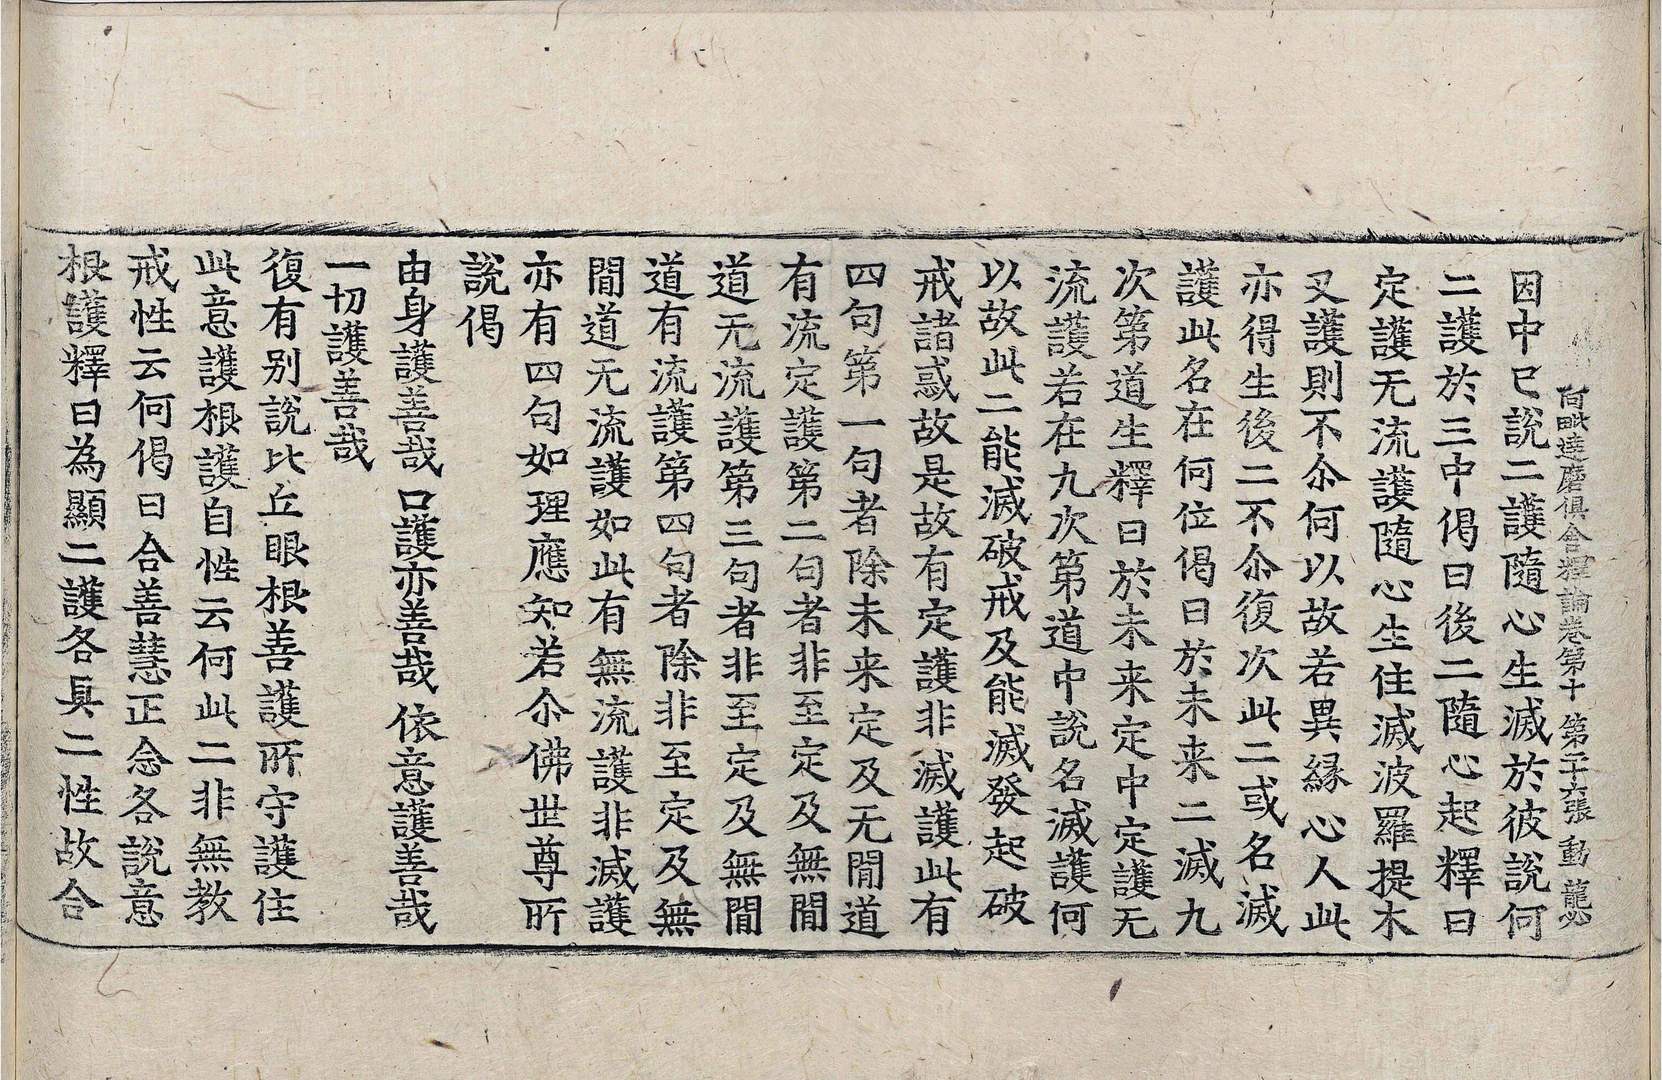 阿毗達磨俱舍釋論卷第十　第二十六張　動
因中已說二護隨心生滅於彼說何
二護於三中偈曰後二隨心起釋曰
定護无流護隨心生住滅波羅提木
叉護則不尒何以故若異緣心人此
亦得生後二不尒復次此二或名滅
護此名在何位偈曰於未来二滅九
次第道生釋曰於未来定中定護无
流護若在九次第道中說名滅護何
以故此二能滅破戒及能滅發起破
戒諸惑故是故有定護非滅護此有
四句第一句者除未来定及无閒道
有流定護第二句者非至定及無閒
道无流護第三句者非至定及無閒
道有流護第四句者除非至定及無
閒道无流護如此有無流護非滅護
亦有四句如理應知若尒佛世尊所
說偈
由身護善哉　口護亦善哉　依意護善哉
一切護善哉
復有别說比丘眼根善護所守護住
此意護根護自性云何此二非無教
戒性云何偈曰合善慧正念各說意
根護釋曰為顯二護各具二性故合